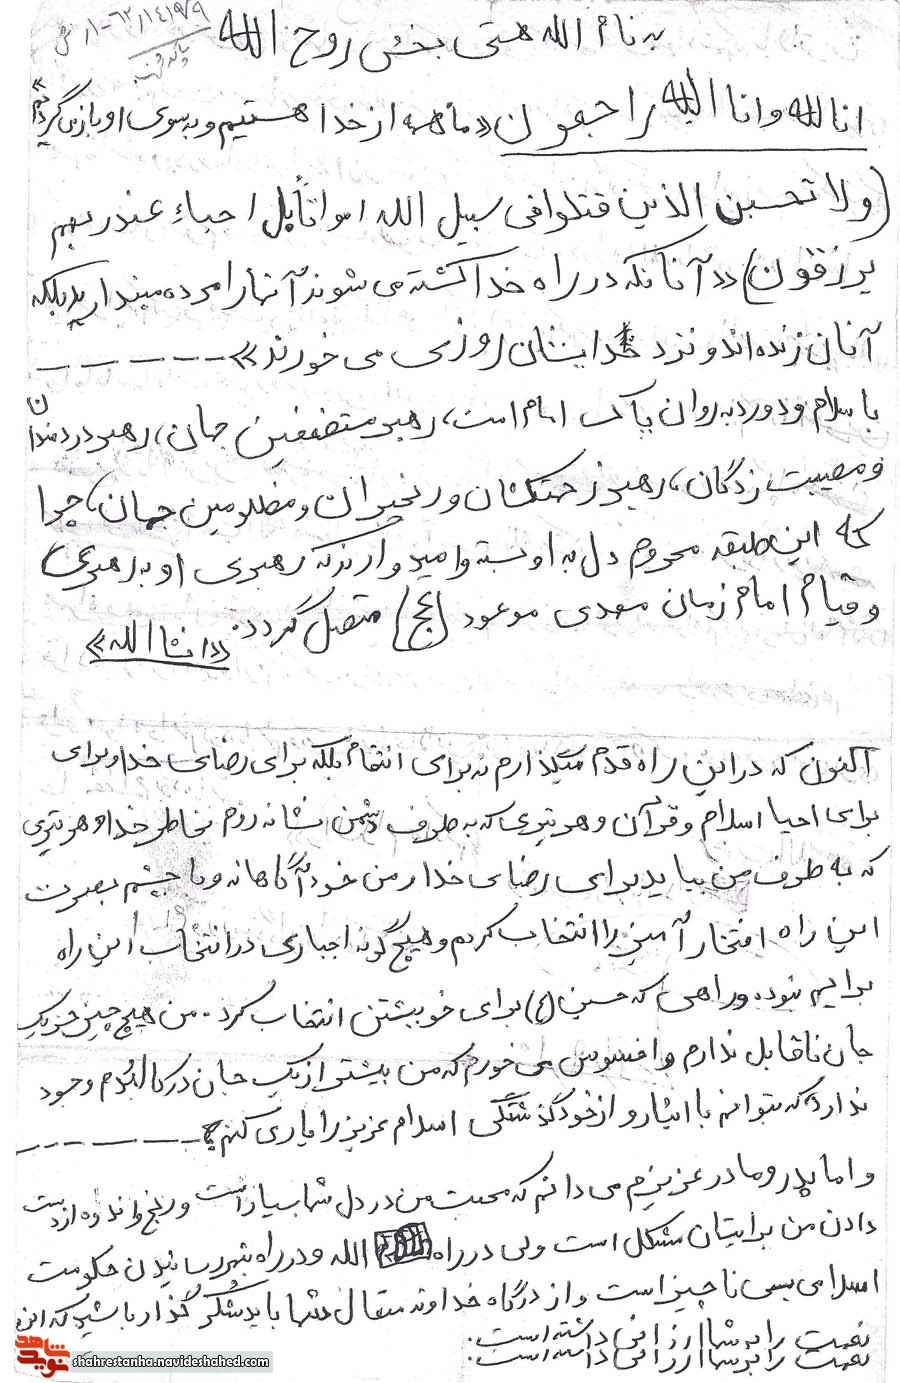 به نام الله هستی بخش روح الله
انا لله و انا الیه راجعون «ما همه از خدا هستیم و به سوی او باز می گردیم»
(ولا تحسبن الذین قتلوا فی سبیل الله امواتاً بل احیاء عند ربهم
یرزقون) «آنانکه در راه خدا کشته می شوند آنها را مرده مپندارید بلکه
آنان زنده اند و نزد خدایشان روزی می خورند» ------
با سلام و درود به روان پاک امام امت، رهبر مستضعفین جهان، رهبر دردمندان
و مصیبت زدگان، رهبر زحمتکشان و رنجبران و مظلومین جهان، چرا
که این طبقه محروم دل به او بسته و امیدوارند که رهبری او به رهبری
و قیام امام زمان مهدی موعود (عج) متصل گردد. «انشاالله»
اکنون که در این راه قدم میگذارم نه برای انتقام بلکه برای رضای خدا و برای
برای احیا اسلام و قرآن و هر تیری که به طرف دشمن نشانه روم بخاطر خدا و هر تیری
که به طرف من بیاید برای رضای خدا. من خود آگاهانه و با چشم بصیرت
این راه افتخار آمیز را انتخاب کردم و هیچ گونه اجباری در انتخاب این راه
برایم نبوده و راهی که حسین (ع) برای خویشتن انتخاب کرد. من هیچ چیز جز یک
جان ناقابل ندارم و افسوس می خورم که من بیشتر از یک جان در کالبدم وجود
ندارد که بتوانم با ایثار و از خود گذشتگی اسلام عزیز را یاری کنم ------
و اما پدر و مادر عزیزم می دانم که محبت من در دل شما بسیار است و رنج و اندوه از دست
دادن من برایتان مشکل است ولی در راه الله و در راه بثمر رسانیدن حکومت
اسلامی بسی ناچیز است و از درگاه خداوند متعال شما باید شکر گذار باشید که این
نعمت را به شما ارزانی داشته است.
نعمت را به شما ارزانی داشته است.
نوید شاهد
shahrestanha.navideshahed.com